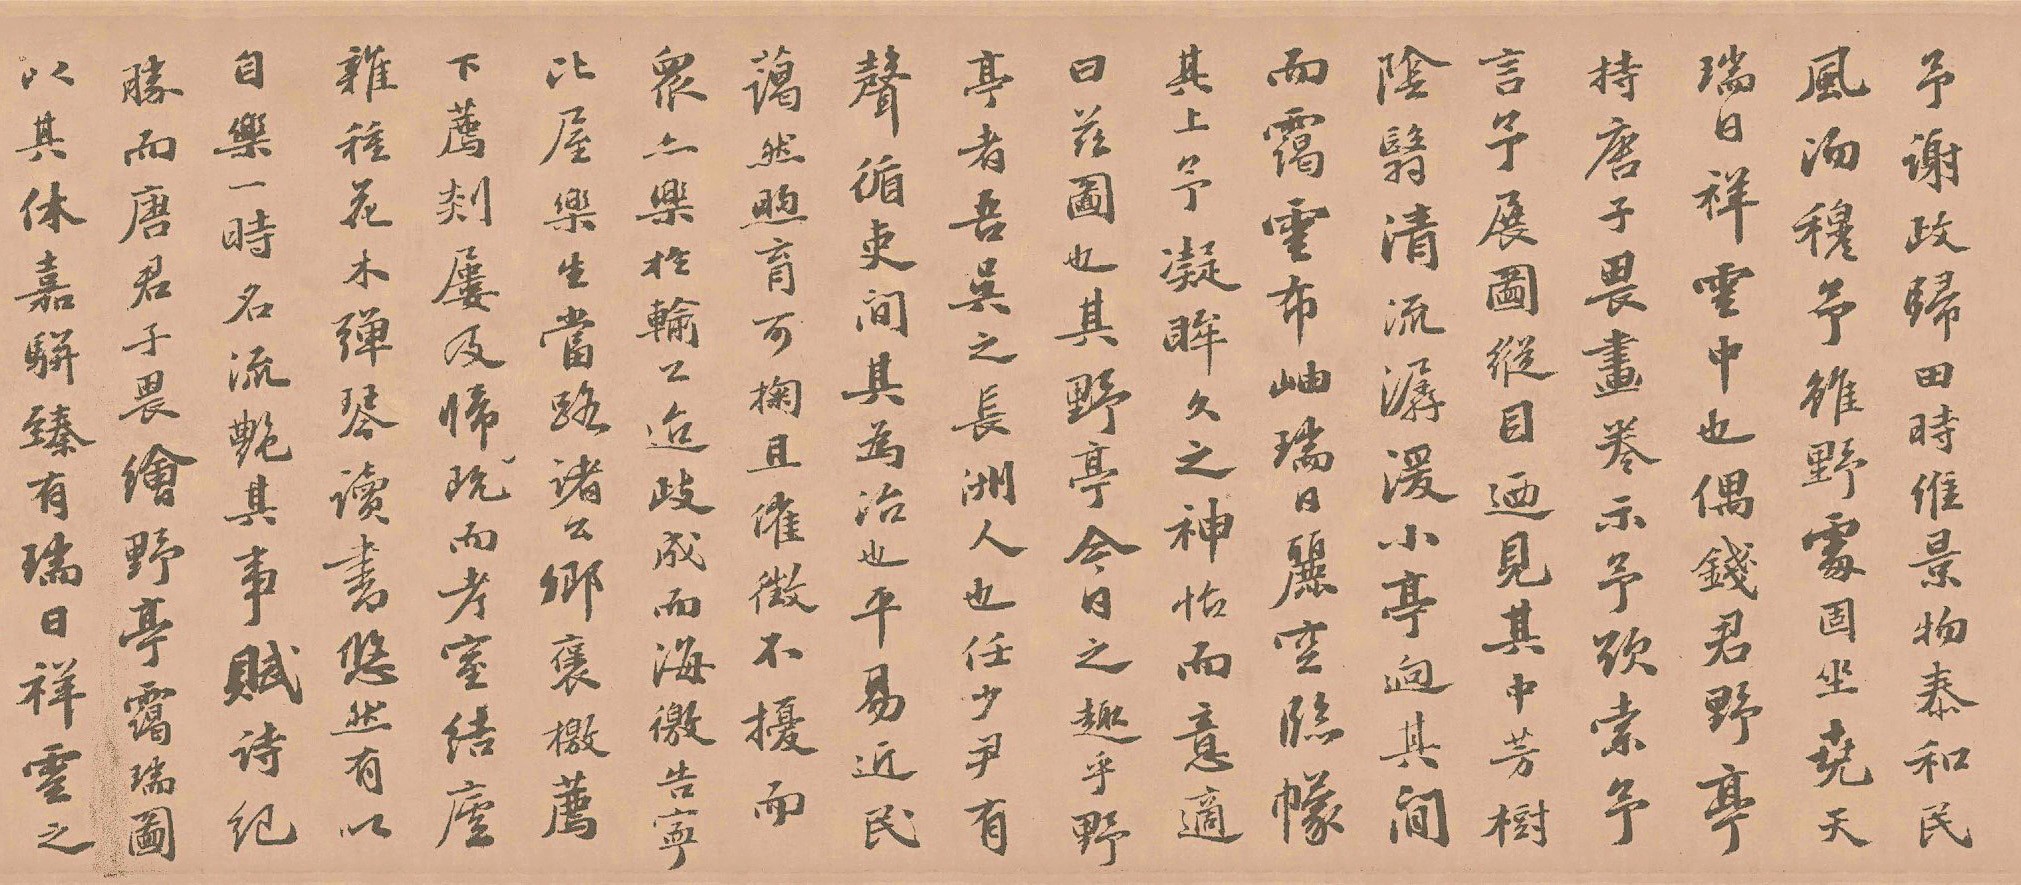 予謝政歸田時維景物泰和民
風沕穆予雖野處固坐堯天
瑞日祥雲中也偶錢君野亭
持唐子畏畫卷示予欵索予
言予展圖縱目迺見其中芳樹
陰翳清流潺湲小亭逈其間
而靄雲布岫瑞日麗空隱幪
其上予凝眸久之神怡而意適
曰茲圖也其野亭今日之趣乎野
亭者吾吳之長洲人也任少尹有
聲循吏間其為治也平易近民
藹然煦育可掬且催徵不擾而
衆亦樂於輸公迨歧成而海徼告寧
比屋樂生當路諸公鄉褒檄薦
下薦剡屢及悌既而考室結廬
雜種花木彈琴讀書悠然有以
自樂一時名流艷其事賦詩紀
勝而唐君子畏繪野亭靄瑞圖
以其休嘉駢臻有瑞日祥雲之